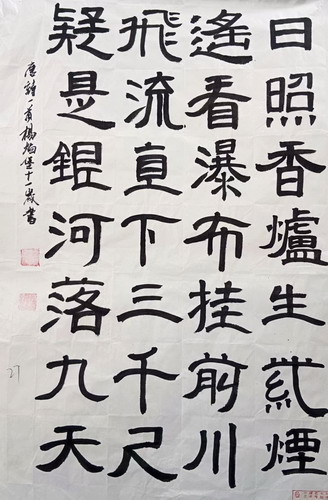 日照香爐生紫煙
遙看瀑布挂前川
飛流直下三千尺
疑是銀河落九天
唐詩一首楊十一歲書
27